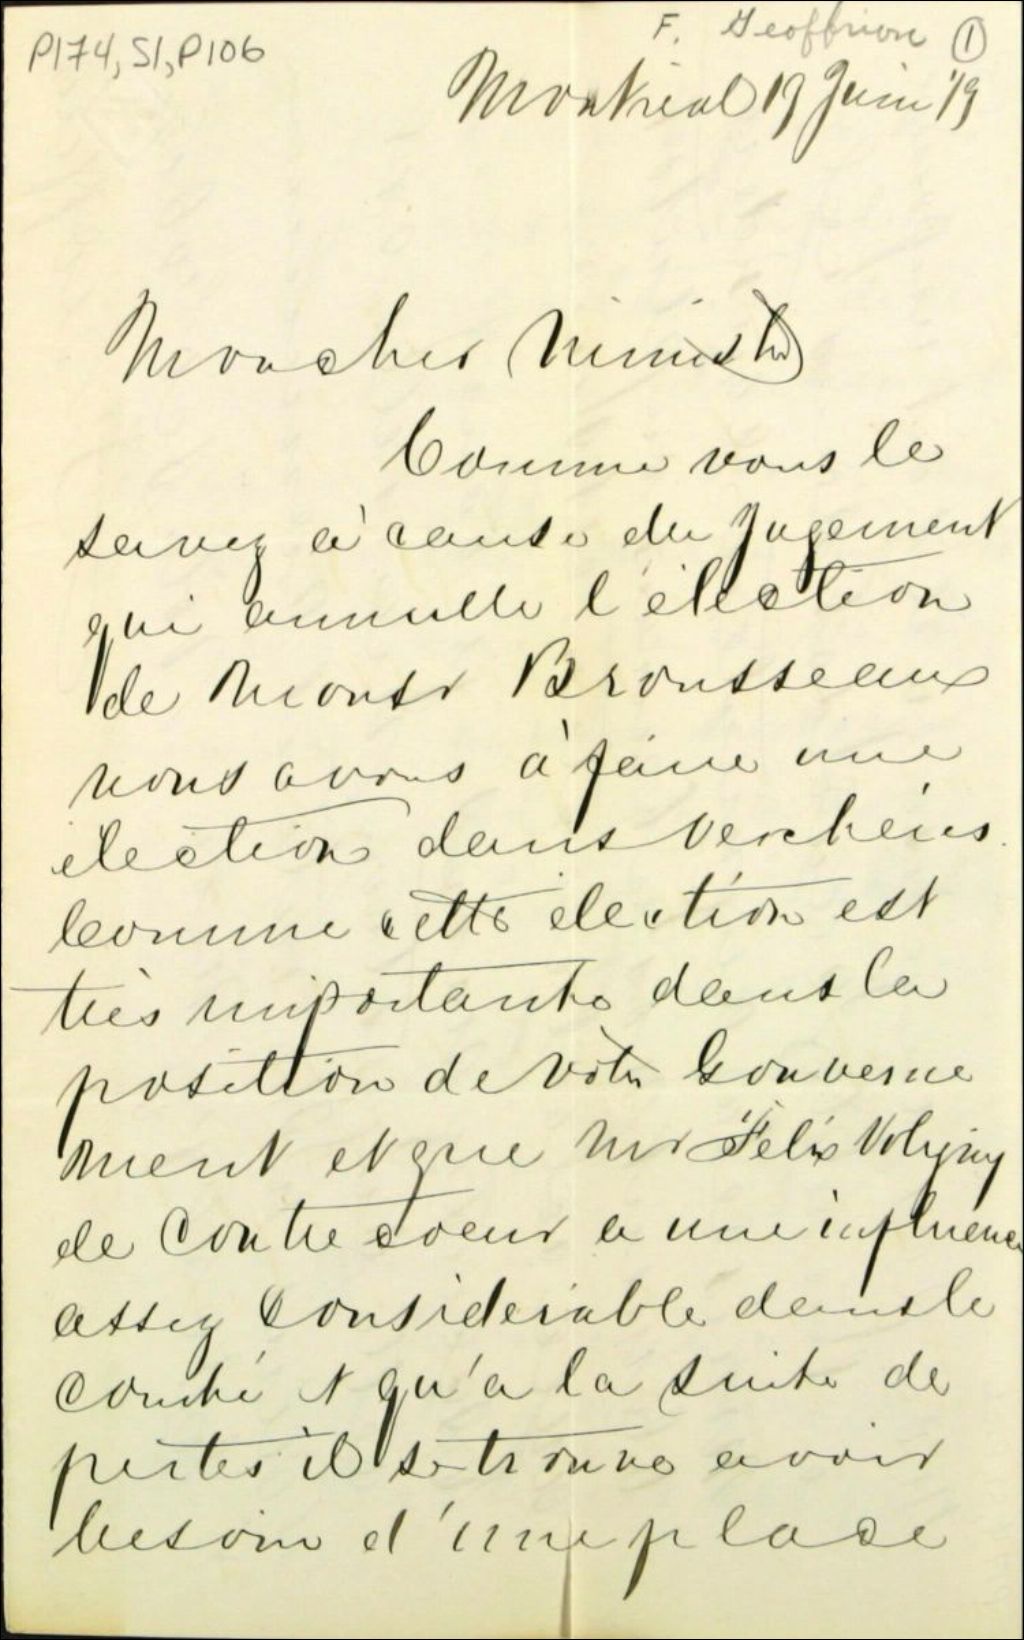 P174, S1, P106
F. Geoffrion 1
Montreal 19 Juin 79
Mon cher Ministre
Comme vous le
savez à cause du Jugement
qui annulle l'élection
de Monsr Brousseau
nous avons à faire une
election dans Verchères.
Comme cette election est
très importante dans la
position de votre Gouverne
ment et que Mr Felix Voligny
de Contrecoeur a une influence
assez Considerable dans le
comté et qu'a la suite de
pertes il se trouve avoir
besoin d'une place